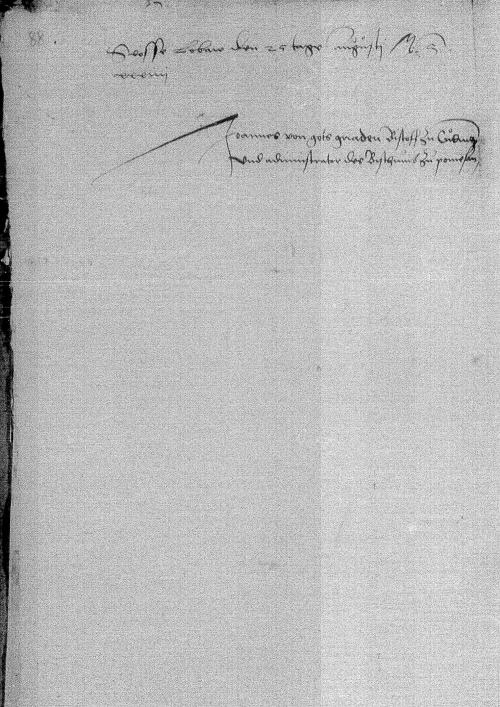 Slosse Lobaw den 25 tage augusti M. d.
xxxiiii
Joannes von gots gnaden Bischoff zu Culmen
Vnd administrater des Bisthumbs zu pomesan